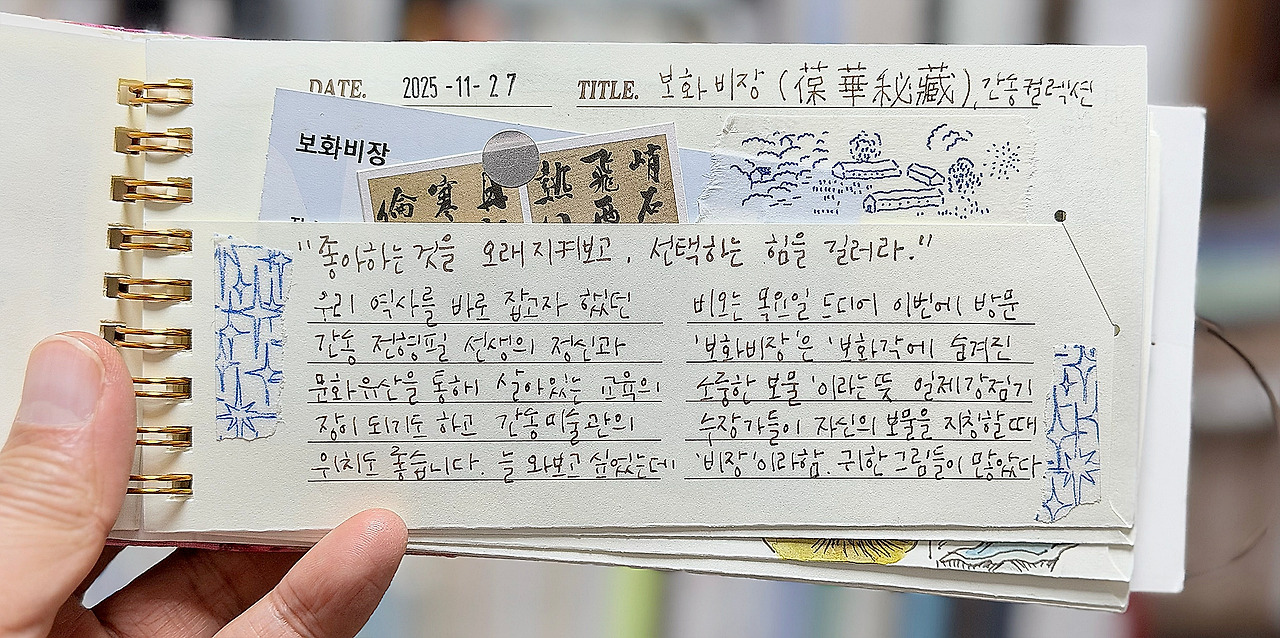 DATE. 2025-11-27 TITLE. 보화비장 (葆華秘藏), 간송컬렉션
보화비장
倫 寒 執 飛 峭
西 石
"좋아하는 것을 오래 지켜보고, 선택하는 힘을 길러라."
우리 역사를 바로 잡고자 했던
간송 전형필 선생의 정신과
문화유산을 통해 살아있는 교육의
장이 되기도 하고 간송미술관의
위치도 좋습니다. 늘 와보고 싶었는데
비오는 목요일 드디어 이번에 방문
'보화비장'은 '보화각에 숨겨진
소중한 보물'이라는 뜻 일제강점기
수장가들이 자신의 보물을 지칭할때
'비장'이라함. 귀한 그림들이 많았다.